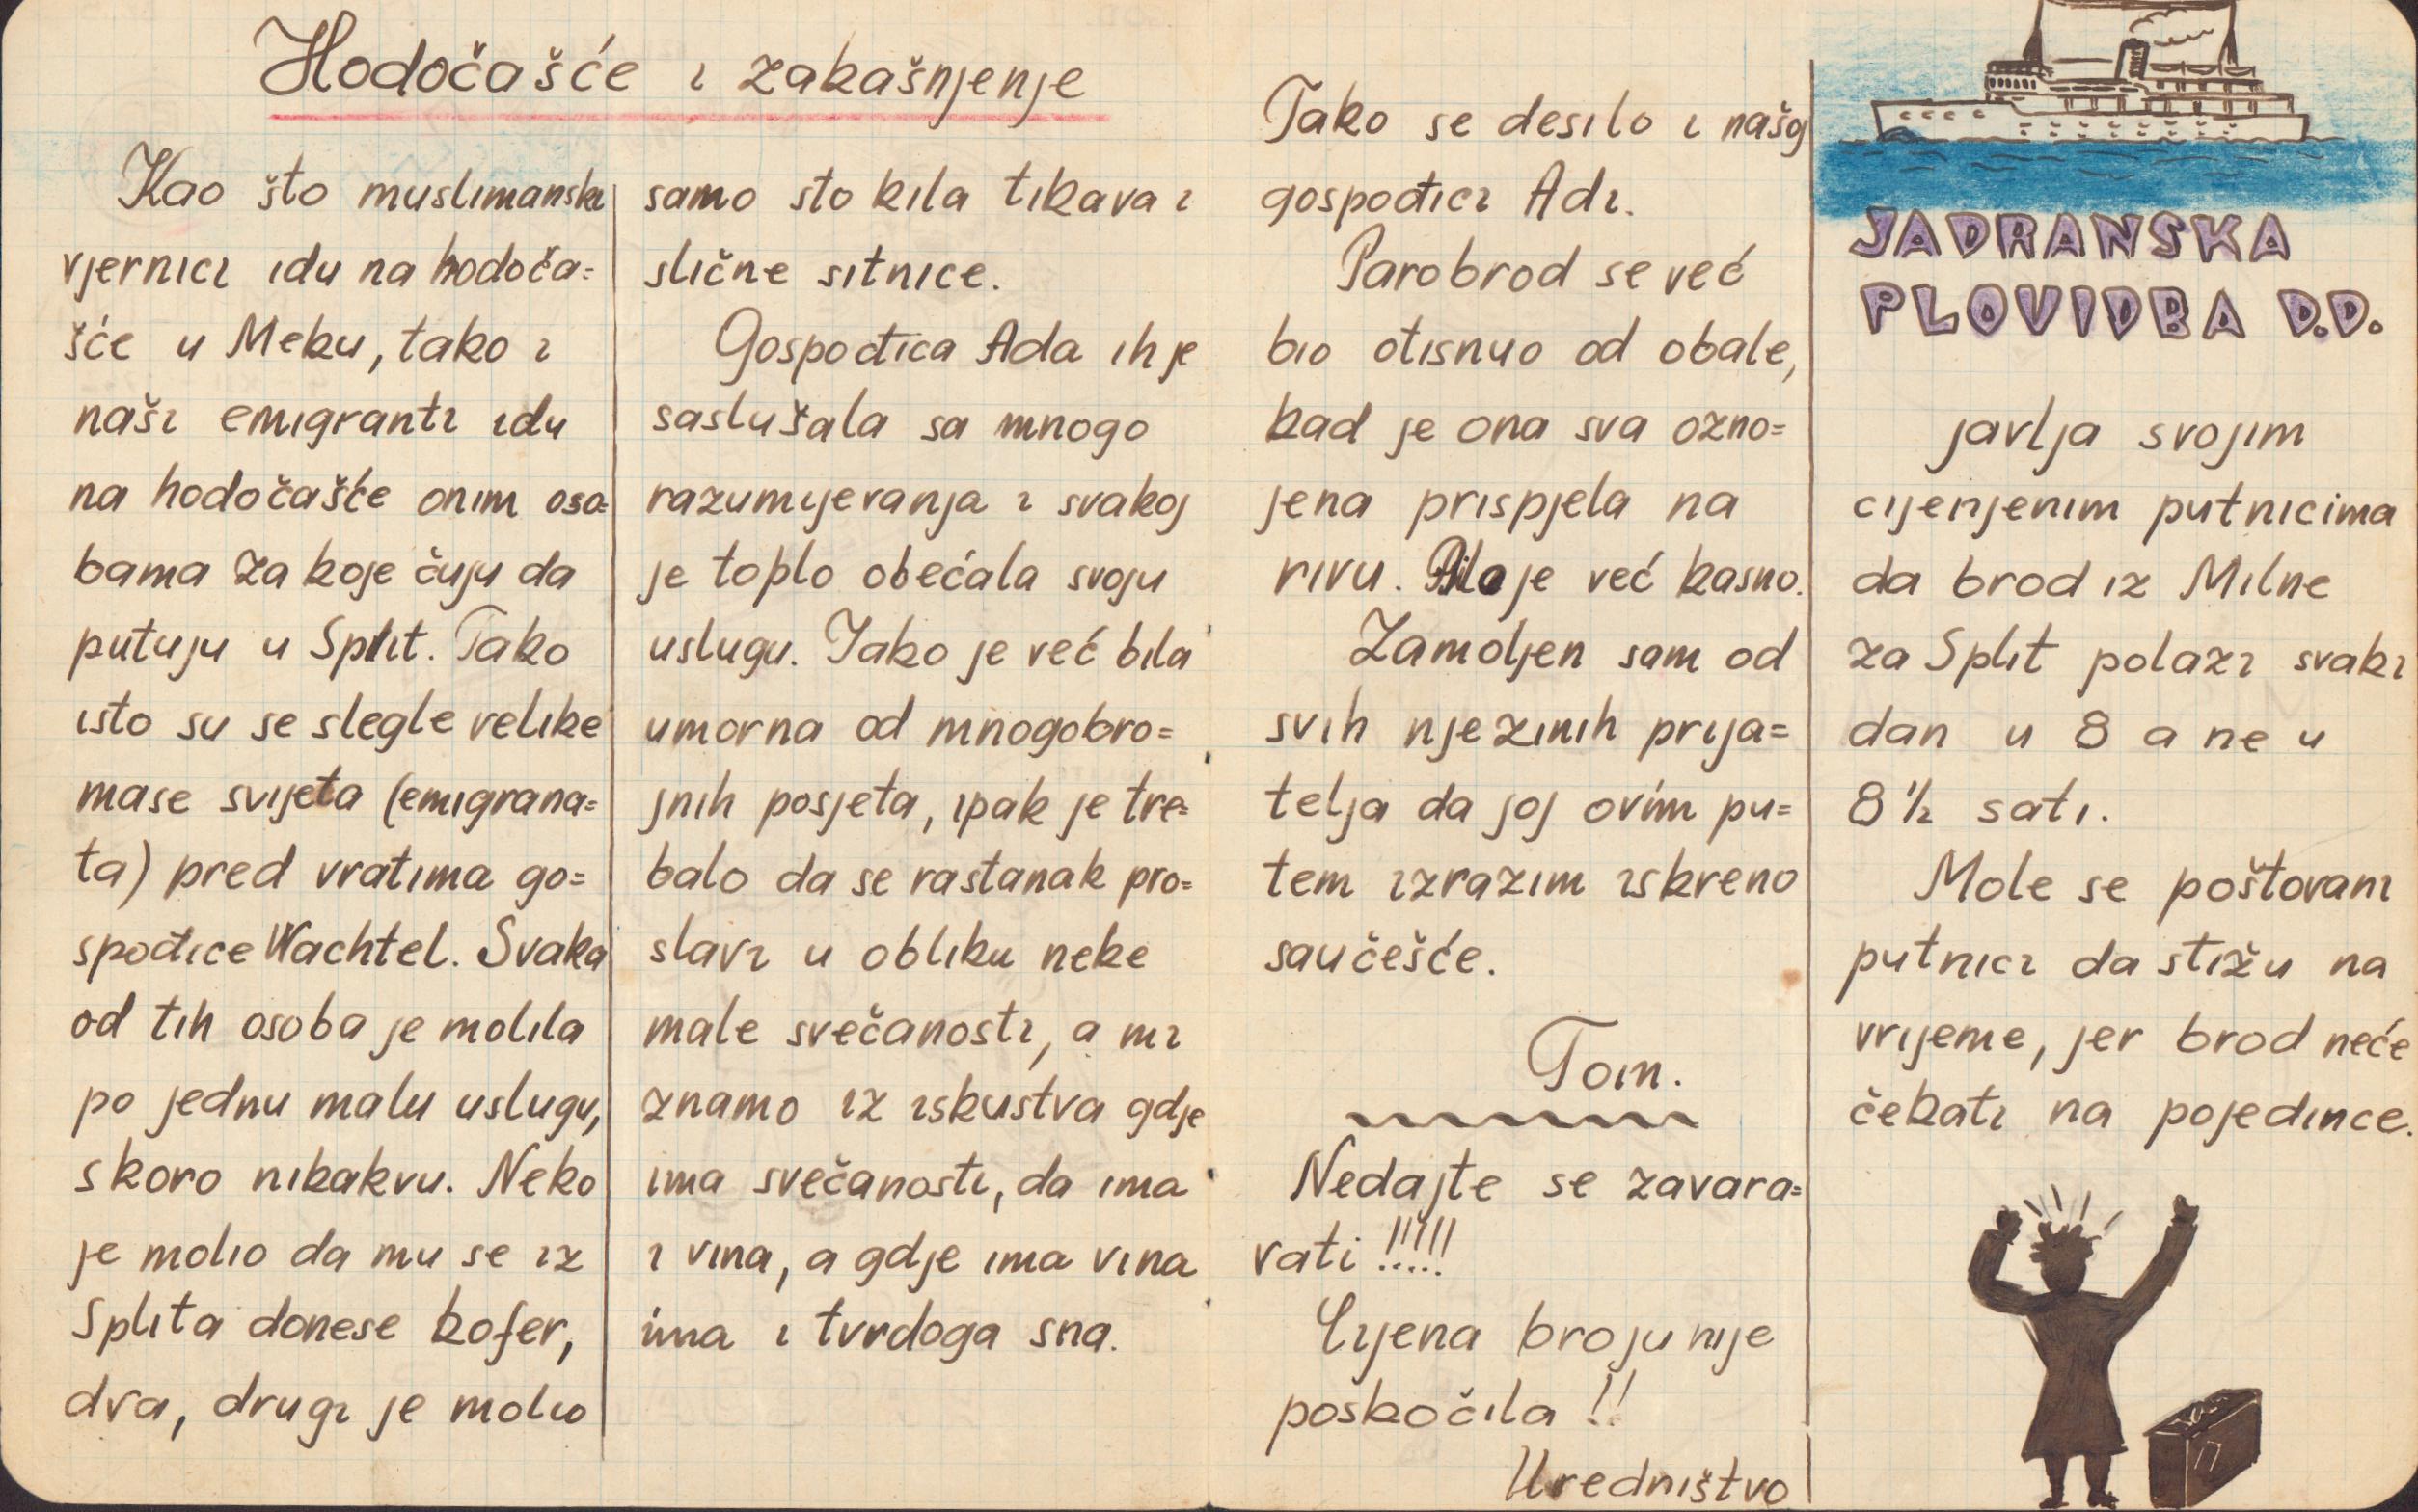 Hodočašće i zakašnjenje
Kao što muslimanski
vjernici idu na hodoča=
šće u Meku, tako i
naši emigranti idu
na hodočašće onim oso=
bama za koje čuju da
putuju u Split. Tako
isto su se slegle velike
mase svijeta (emigrana=
ta) pred vratima go=
spođice Wachtel. Svaka
od tih osoba je molila
po jednu malu uslugu,
skoro nikakvu. Neko
je molio da mu se iz
Splita donese kofer,
dva, drugi je molio
samo sto kila tikava i
slične sitnice.
Gospođica Ada ih je
saslušala sa mnogo
razumijevanja i svakoj
je toplo obećala svoju
uslugu. Iako je već bila
umorna od mnogobro=
jnih posjeta, ipak je tre=
balo da se rastanak pro=
slavi u obliku neke
male svečanosti, a mi
znamo iz iskustva gdje
ima svečanosti, da ima
i vina, a gdje ima vina
ima i tvrdoga sna.
Tako se desilo i našoj
gospođici Adi.
Parobrod se već
bio otisnuo od obale,
kad je ona sva ozno=
jena prispjela na
rivu. Bilo je već kasno.
Zamoljen sam od
svih njezinih prija=
telja da joj ovim pu=
tem izrazim iskreno
saučešće.
Tom.
Nedajte se zavara=
vati !!!!!
Cijena broju nije
poskočila !!
Uredništvo
JADRANSKA
PLOVIDBA D.D.
javlja svojim
cijenjenim putnicima
da brod iz Milne
za Split polazi svaki
dan u 8 a ne u
8 ½ sati.
Mole se poštovani
putnici da stižu na
vrijeme, jer brod neće
čekati na pojedince.